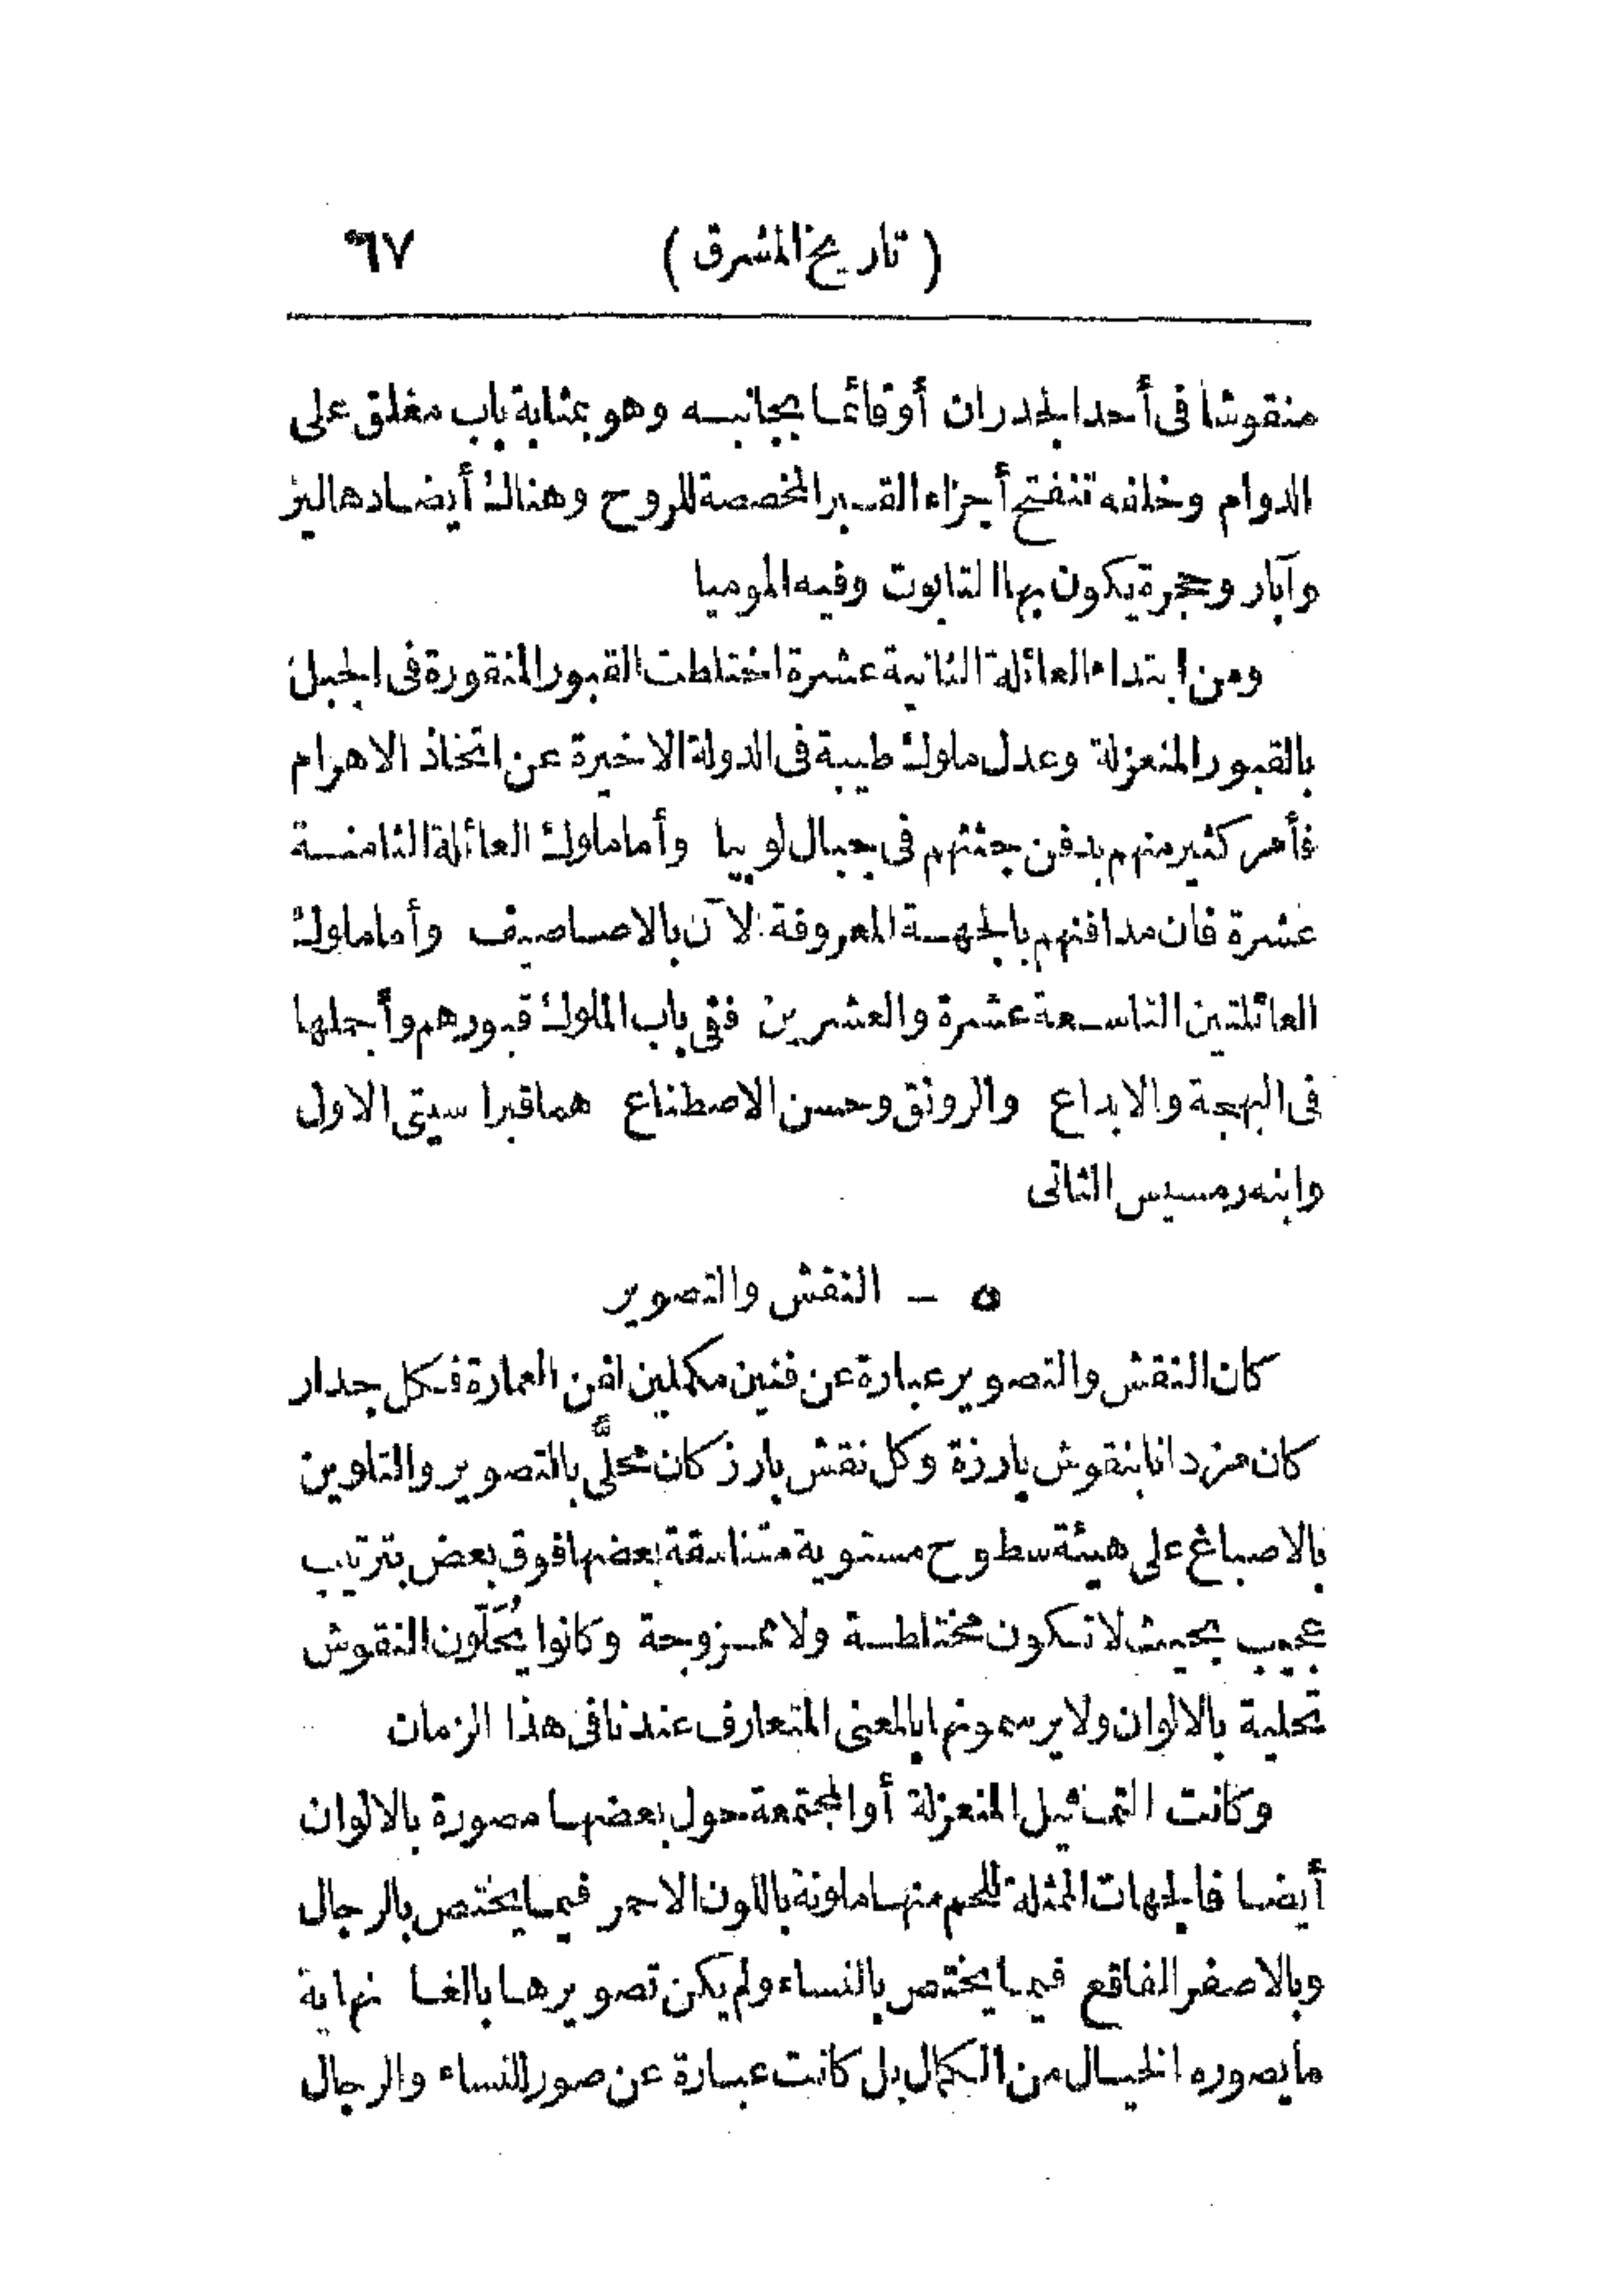 ( تاريخ المشرق ) ٦٧
منقوشا فى أحد الجدران أو قائما بجانبه وهو بمثابة باب مغلق على
الدوام وخلفه تنفتح أجزاء القبر المخصصة للروح وهناك أيضا دهاليز
وآبار وحجرة يكون بها التابوت وفيه الموميا
ومن ابتداء العائلة الثانية عشرة اختلطت القبور المنقورة فى الجبل
بالقبور المنعزلة وعدل ملوك طيبة فى الدولة الاخيرة عن اتخاذ الاهرام
فأمر كثير منهم بدفن جثثهم فى جبال لوبيا وأما ملوك العائلة الثامنة
عشرة فان مدافنهم بالجهة المعروفة الآن بالاصاصيف وأما ملوك
العائلتين التاسعة عشرة والعشرين ففى باب الملوك قبورهم وأجملها
فى البهجة والابداع والرونق وحسن الاصطناع هما قبرا سيتى الاول
وابنه رمسيس الثانى
٥ – النقش والتصوير
كان النقش والتصوير عبارة عن فنين مكملين لفن العمارة فكل جدار
كان مزدانا بنقوش بارزة وكل نقش بارز كان محلَّى بالتصوير والتلوين
بالاصباغ على هيئة سطوح مستوية متناسقة بعضها فوق بعض بترتيب
عجيب بحيث لا تكون مختلطة ولا ممزوجة وكانوا يُحَلّون النقوش
تحلية بالالوان ولا يرسمونها بالمعنى المتعارف عندنا فى هذا الزمان
وكانت التماثيل المنعزلة أو المجتمعة حول بعضها مصورة بالالوان
أيضا فالجهات الممثلة للحم منها ملونة باللون الاحمر فيما يختص بالرجال
وبالاصفر الفاقع فيما يختص بالنساء ولم يكن تصويرها بالغا نهاية
ما يصوره الخيال من الكمال بل كانت عبارة عن صور للنساء والرجال